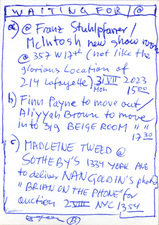 WAITING FOR/@
a) @ Franz Stuhlpfarrer/
McIntosh new show
@ 357 W 17th (not like the
glorious Location of
214 Lafayette) 31 VII 2023
15:00
b) Finn Payne to move out/
Aliyyah Brown to move
into 3rd BEIGE ROOM " "
17:30
c) MADELINE TWEED @
SOTHEBY'S 1334 YORK AVE
to deliver NAN GOLDIN'S photo
"BRIAN ON THE PHONE" for
auction 2 VIII NYC 13:54